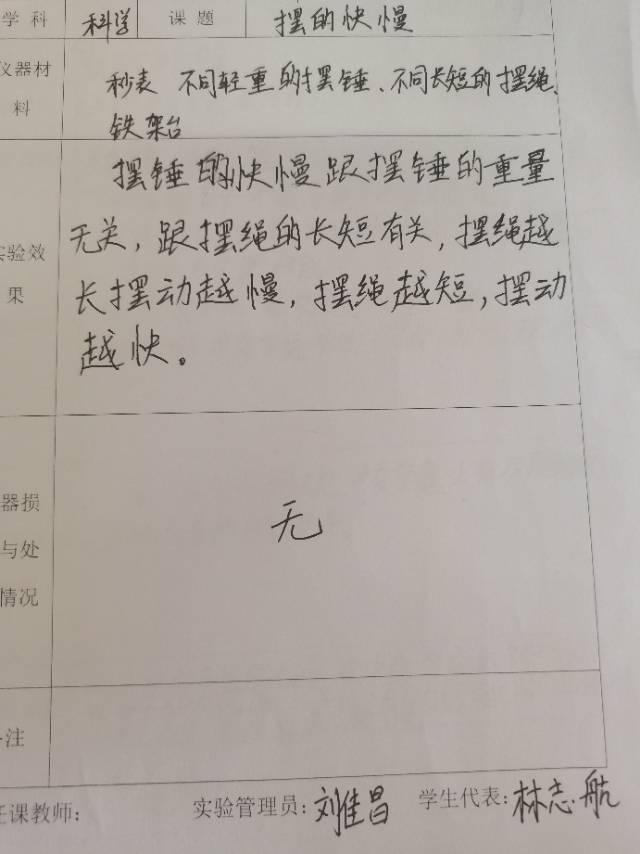 学科 科学 课题 摆的快慢
仪器材 秒表 不同轻重的摆锤、不同长短的摆绳、
料 铁架台
摆锤的快慢跟摆锤的重量
无关，跟摆绳的长短有关，摆绳越
实验效
果 长摆动越慢，摆绳越短，摆动
越快。
器损
无
与处
情况
注
任课教师： 实验管理员：刘佳昌 学生代表：林志航